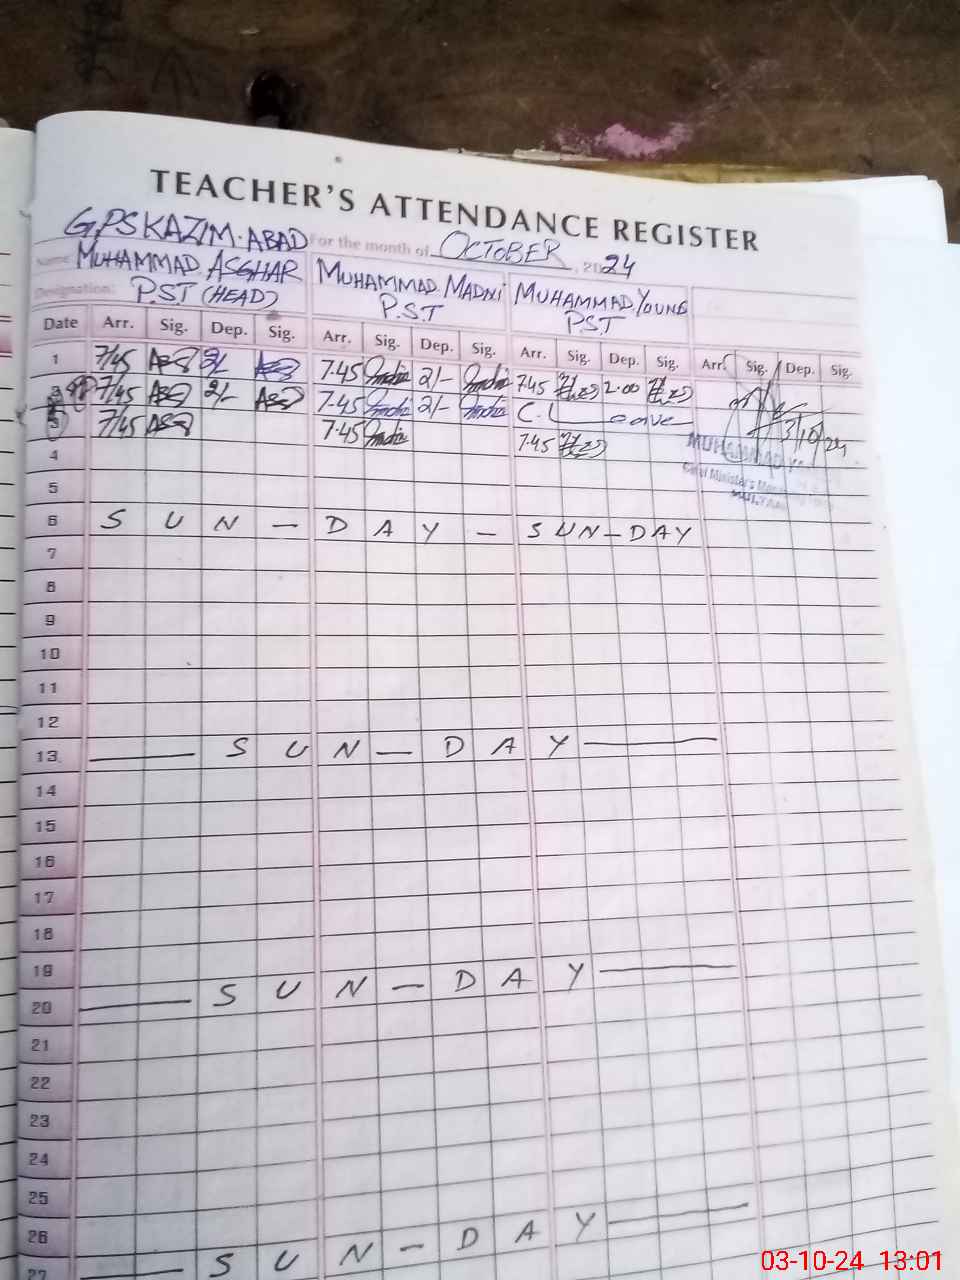 TEACHER'S ATTENDANCE REGISTER
G.P.S KAZIM-ABAD For the month of OCTOBER, 2024
Name MUHAMMAD ASGHAR MUHAMMAD MADNI MUHAMMAD YOUNS
Designation: P.ST (HEAD) P.S.T PST
Date Arr. Sig. Dep. Sig. Arr. Sig. Dep. Sig. Arr. Sig. Dep. Sig. Arr. Sig. Dep. Sig.
1 7/45 2/- 7.45 2/- 7.45 2.00
2 7/45 2/- 7.45 2/- C.L eave
3 7/45 7.45 7.45 3/10/24
4 MUHAMMAD
5 Minister's
6 SUN-DAY - SUN-DAY MULTAN
7
8
9
10
11
12
13 SUN-DAY
14
15
16
17
18
19
20 SUN-DAY
21
22
23
24
25
26
27 SUN-DAY
03-10-24 13:01